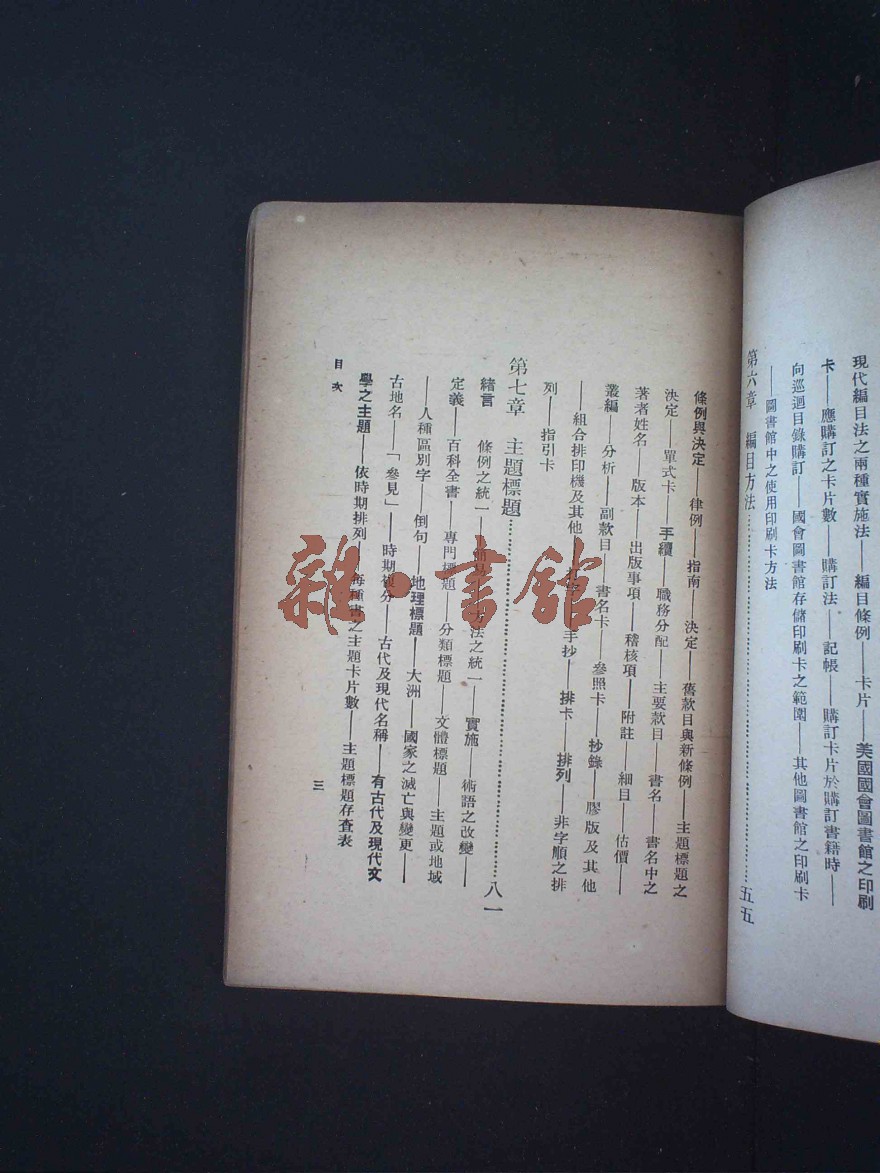 現代編目法之兩種實施法——編目條例——卡片——美國國會圖書館之印刷
卡——應購訂之卡片數——購訂法——記帳——購訂卡片於購訂書籍時——
向巡迴目錄購訂——國會圖書館存儲印刷卡之範圍——其他圖書館之印刷卡
——圖書館中之使用印刷卡方法
第六章 編目方法……五五
條例與決定——律例——指南——決定——舊款目與新條例——主題標題之
決定——單式卡——手續——職務分配——主要款目——書名——書名中之
著者姓名——版本——出版事項——稽核項——附註——細目——估價——
叢編——分析——副款目——書名卡——參照卡——抄錄——膠版及其他
——組合排印機及其他——手抄——排卡——排列——非字順之排
列——指引卡
第七章 主題標題……八一
緒言 條例之統一——簡易——方法之統一——實施——術語之改變——
定義——百科全書——專門標題——分類標題——文體標題——主題或地域
——人種區別字——倒句——地理標題——大洲——國家之滅亡與變更——
古地名——「參見」——時期複分——古代及現代名稱——有古代及現代文
學之主題——依時期排列——每種書之主題卡片數——主題標題存查表
目次
三
雜·書館